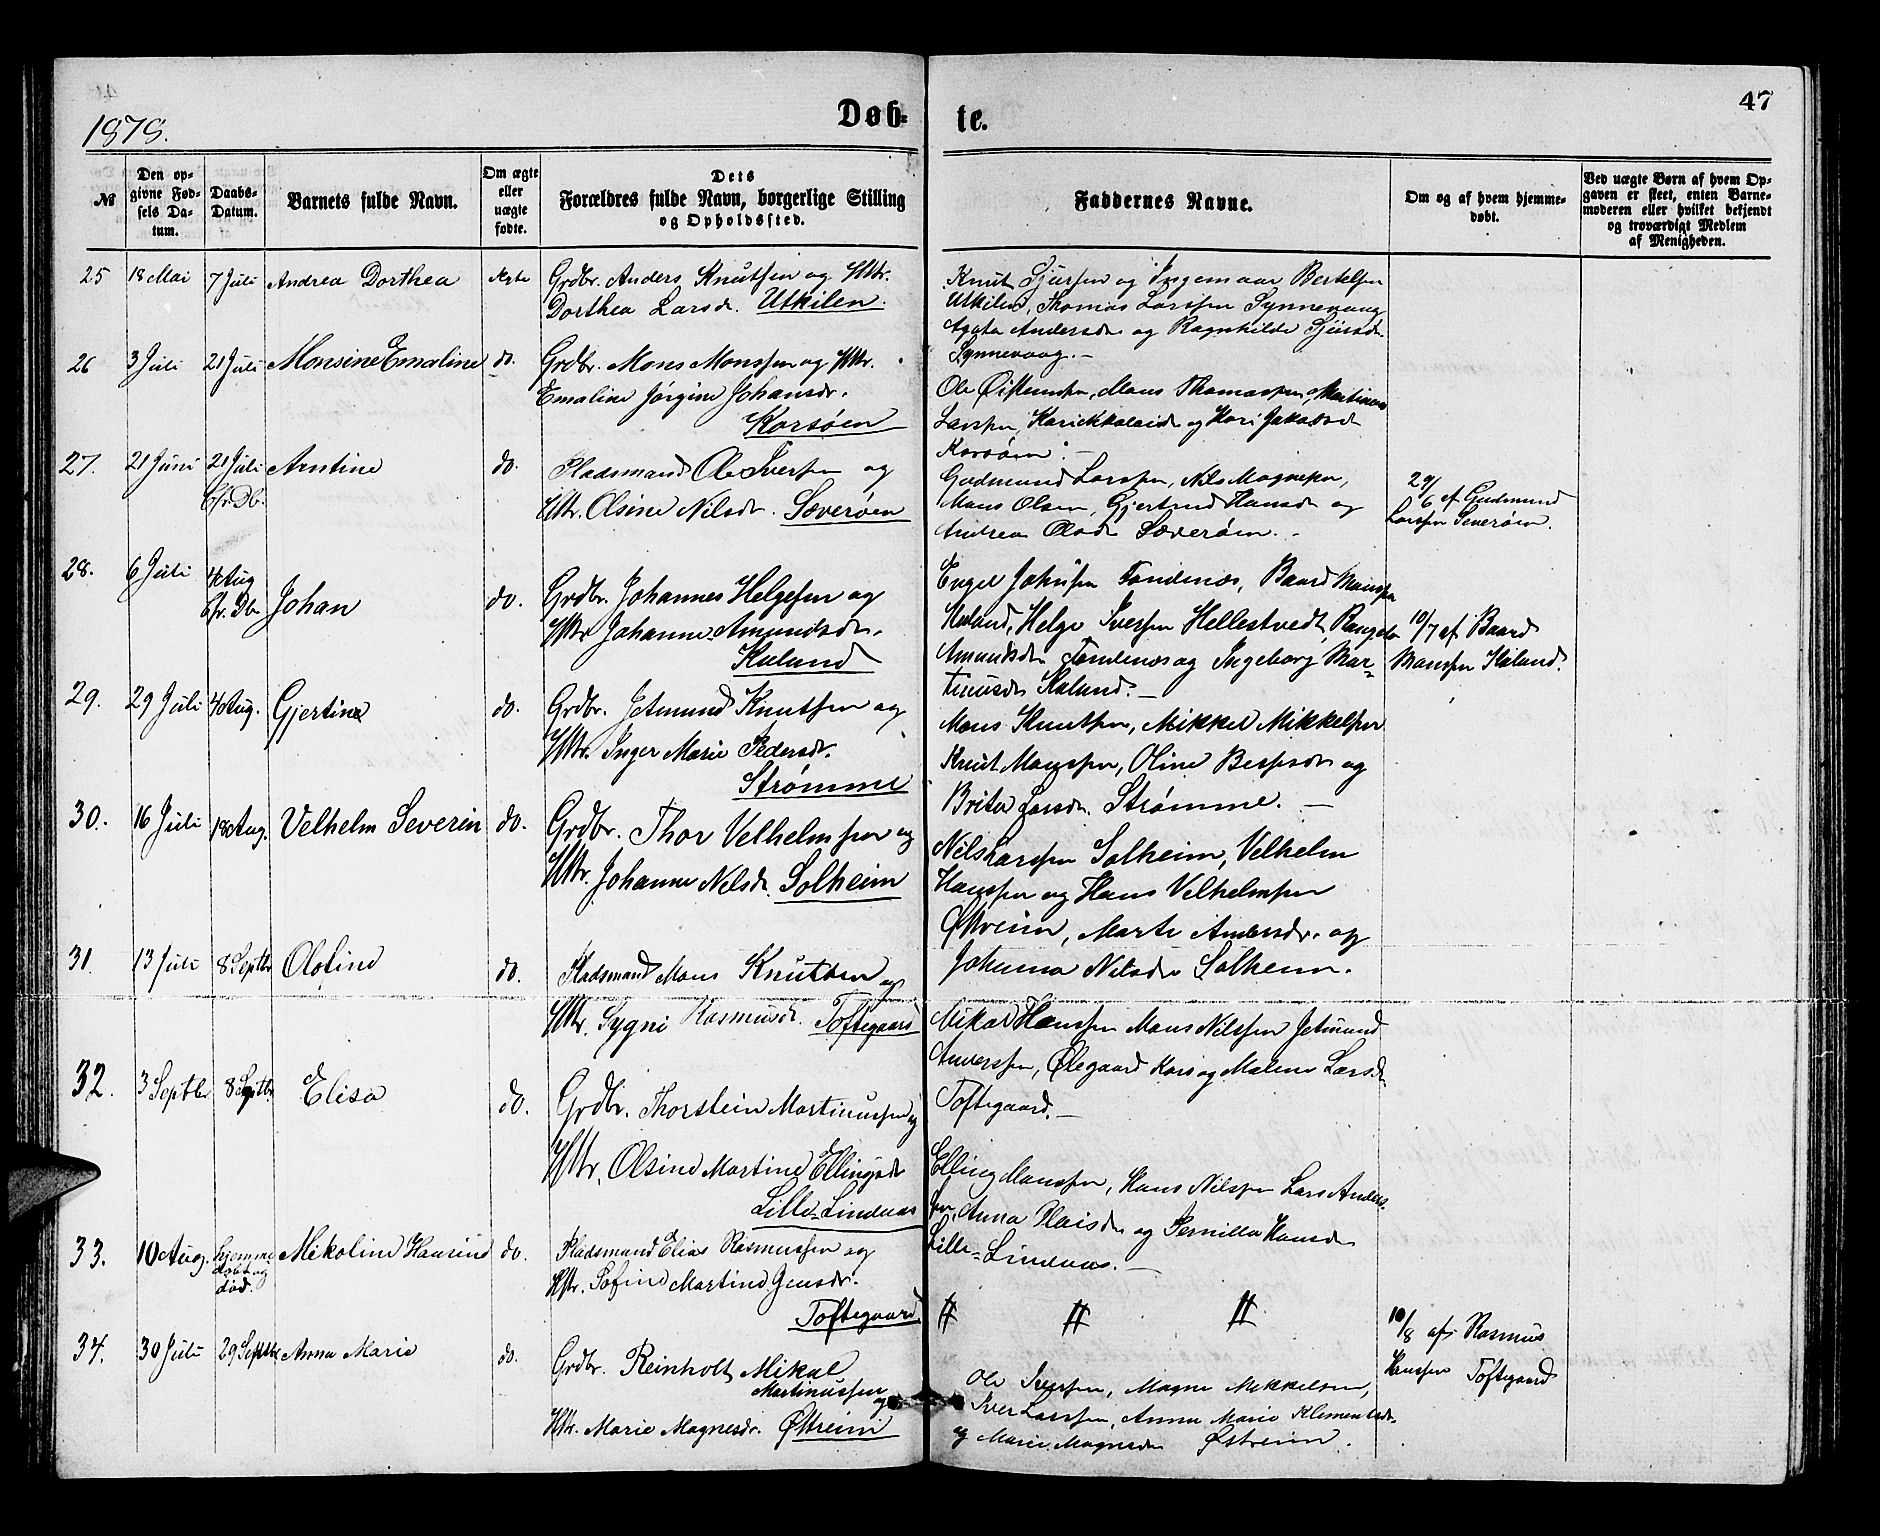 47
1878.
Døb-
te.
№
Den op-
givne Fød-
sels Da-
tum.
Daabs-
Datum.
Barnets fulde Navn.
Om ægte
eller
uægte
fødte.
Dets
Forældres fulde Navn, borgerlige Stilling
og Opholdssted.
Faddernes Navne.
Om og af hvem hjemme-
døbt.
Ved uægte Børn af hvem Op-
gaven er skeet, enten Barne-
moderen eller hvilket bekjendt
og troværdigt Medlem
af Menigheden.
25 18 Mai 7 Juli Andrea Dorthea Ægte Grdbr. Anders Knutsen og Hstr.
Dorthea Larsd. Utkilen.
Knut Sjursen og Ingemaar Bertelsen
Utkilen, Thomas Larssen Synnevaag
Agata Andersdr og Ragnhilde Sjursdr.
Synnevaag.-
26 3 Juli 21 Juli Monsine Emaline do. Grdbr. Mons Monssen og Hstr.
Emaline Jørgine Johansdr.
Korsøen
Ole Øistensen, Mons Thomassen, Martinus
Larssen, og Kari Jakobsd
Korsøen.-
27. 21 Juni 21 Juli Arntine do. Pladsmand Ole Iversen og
Cfr. Db.
Hstr. Olsine Nilsdr. Sæverøen
Gudmund Larssen, Nils Magnesen,
Mons Olsen, Gjertrud Hansdr og
Andrea Olsdr Sæverøen.-
29/
6 af Gudmund
Larssen Severøen.
28. 6 Juli 4 Aug Johan do. Grdbr. Johannes Helgesen og
Cfr. Db.
Hstr Johanne Amundsdr.
Kaland
Engel Johnsen Tondenæs, Baard Monssen
Kaland, Helge Iversen Hellestvedt,
Amundsdr Tondenæs og Ingeborg Mar-
tinusdr Kaland.-
10/7 af Baard
Monssen Kaland.
29. 29 Juli 4 Aug. Gjertine do. Grdbr. Jetmund Knutsen og
Hstr. Inger Marie Pedersdr.
Strømme
Mons Knutsen, Mikkel Mikkelsen
Knut Monssen, Oline og
Brita Larsdr. Strømme.-
30. 16 Juli 18 Aug. Velhelm Severin do. Grdbr. Thor Velhelmsen og
Hstr. Johanne Nilsdr. Solheim
Nils Larssen Solheim, Velhelm
Hanssen og Hans Velhelmsen
Østreim, Marte Andersdr. og
Johanna Nilsdr Solheim.
31. 13 Juli 8 Septbr Olofine do. Pladsmand Mons Knutsen og
Hstr. Sygni Rasmusdr. Toftegaard
Mikal Hanssen Mons Nilssen Jetmund
Anderssen, Ølegaard og Malene Larsdr
Toftegaard.-
32. 3 Septbr 8 Septbr Elisa do. Grdbr. Thorstein Martinussen og
Hstr. Olsine Martine Ellingsdr
Lille-Lindaas
Elling Monssen, Hans Nilssen Lars Anders-
sen, Anna og Pernilla Hansdr
Lille-Lindaas.-
33. 10 Aug. hjemme Mikoline Hansine do. Pladsmand Elias Rasmussen og
døbt og
død.
Hstr. Sofine Martine Jensdr.
Toftegaard
10/8 af Rasmus
Hanssen Toftegaard
34. 30 Juli 29 Septbr Anna Marie do. Grdbr. Reinholt Mikal
Martinussen
og
Hstr. Marie Magnesdr. Østreim
Ole Iverssen, Magne Mikkelsen,
Iver Larssen, Anna Marie Klementsdr.
og Marie Magnesdr Østreim.